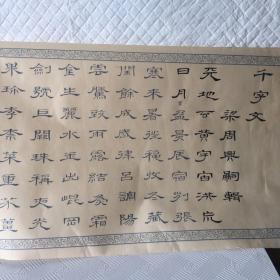 千字文
梁周興嗣輯
天地玄黃宇宙洪荒
日月盈昃辰宿列張
寒來暑往秋收冬藏
閏餘成歲律呂調陽
雲騰致雨露結為霜
金生麗水玉出崐岡
劍號巨闕珠稱夜光
果珍李柰菜重芥薑